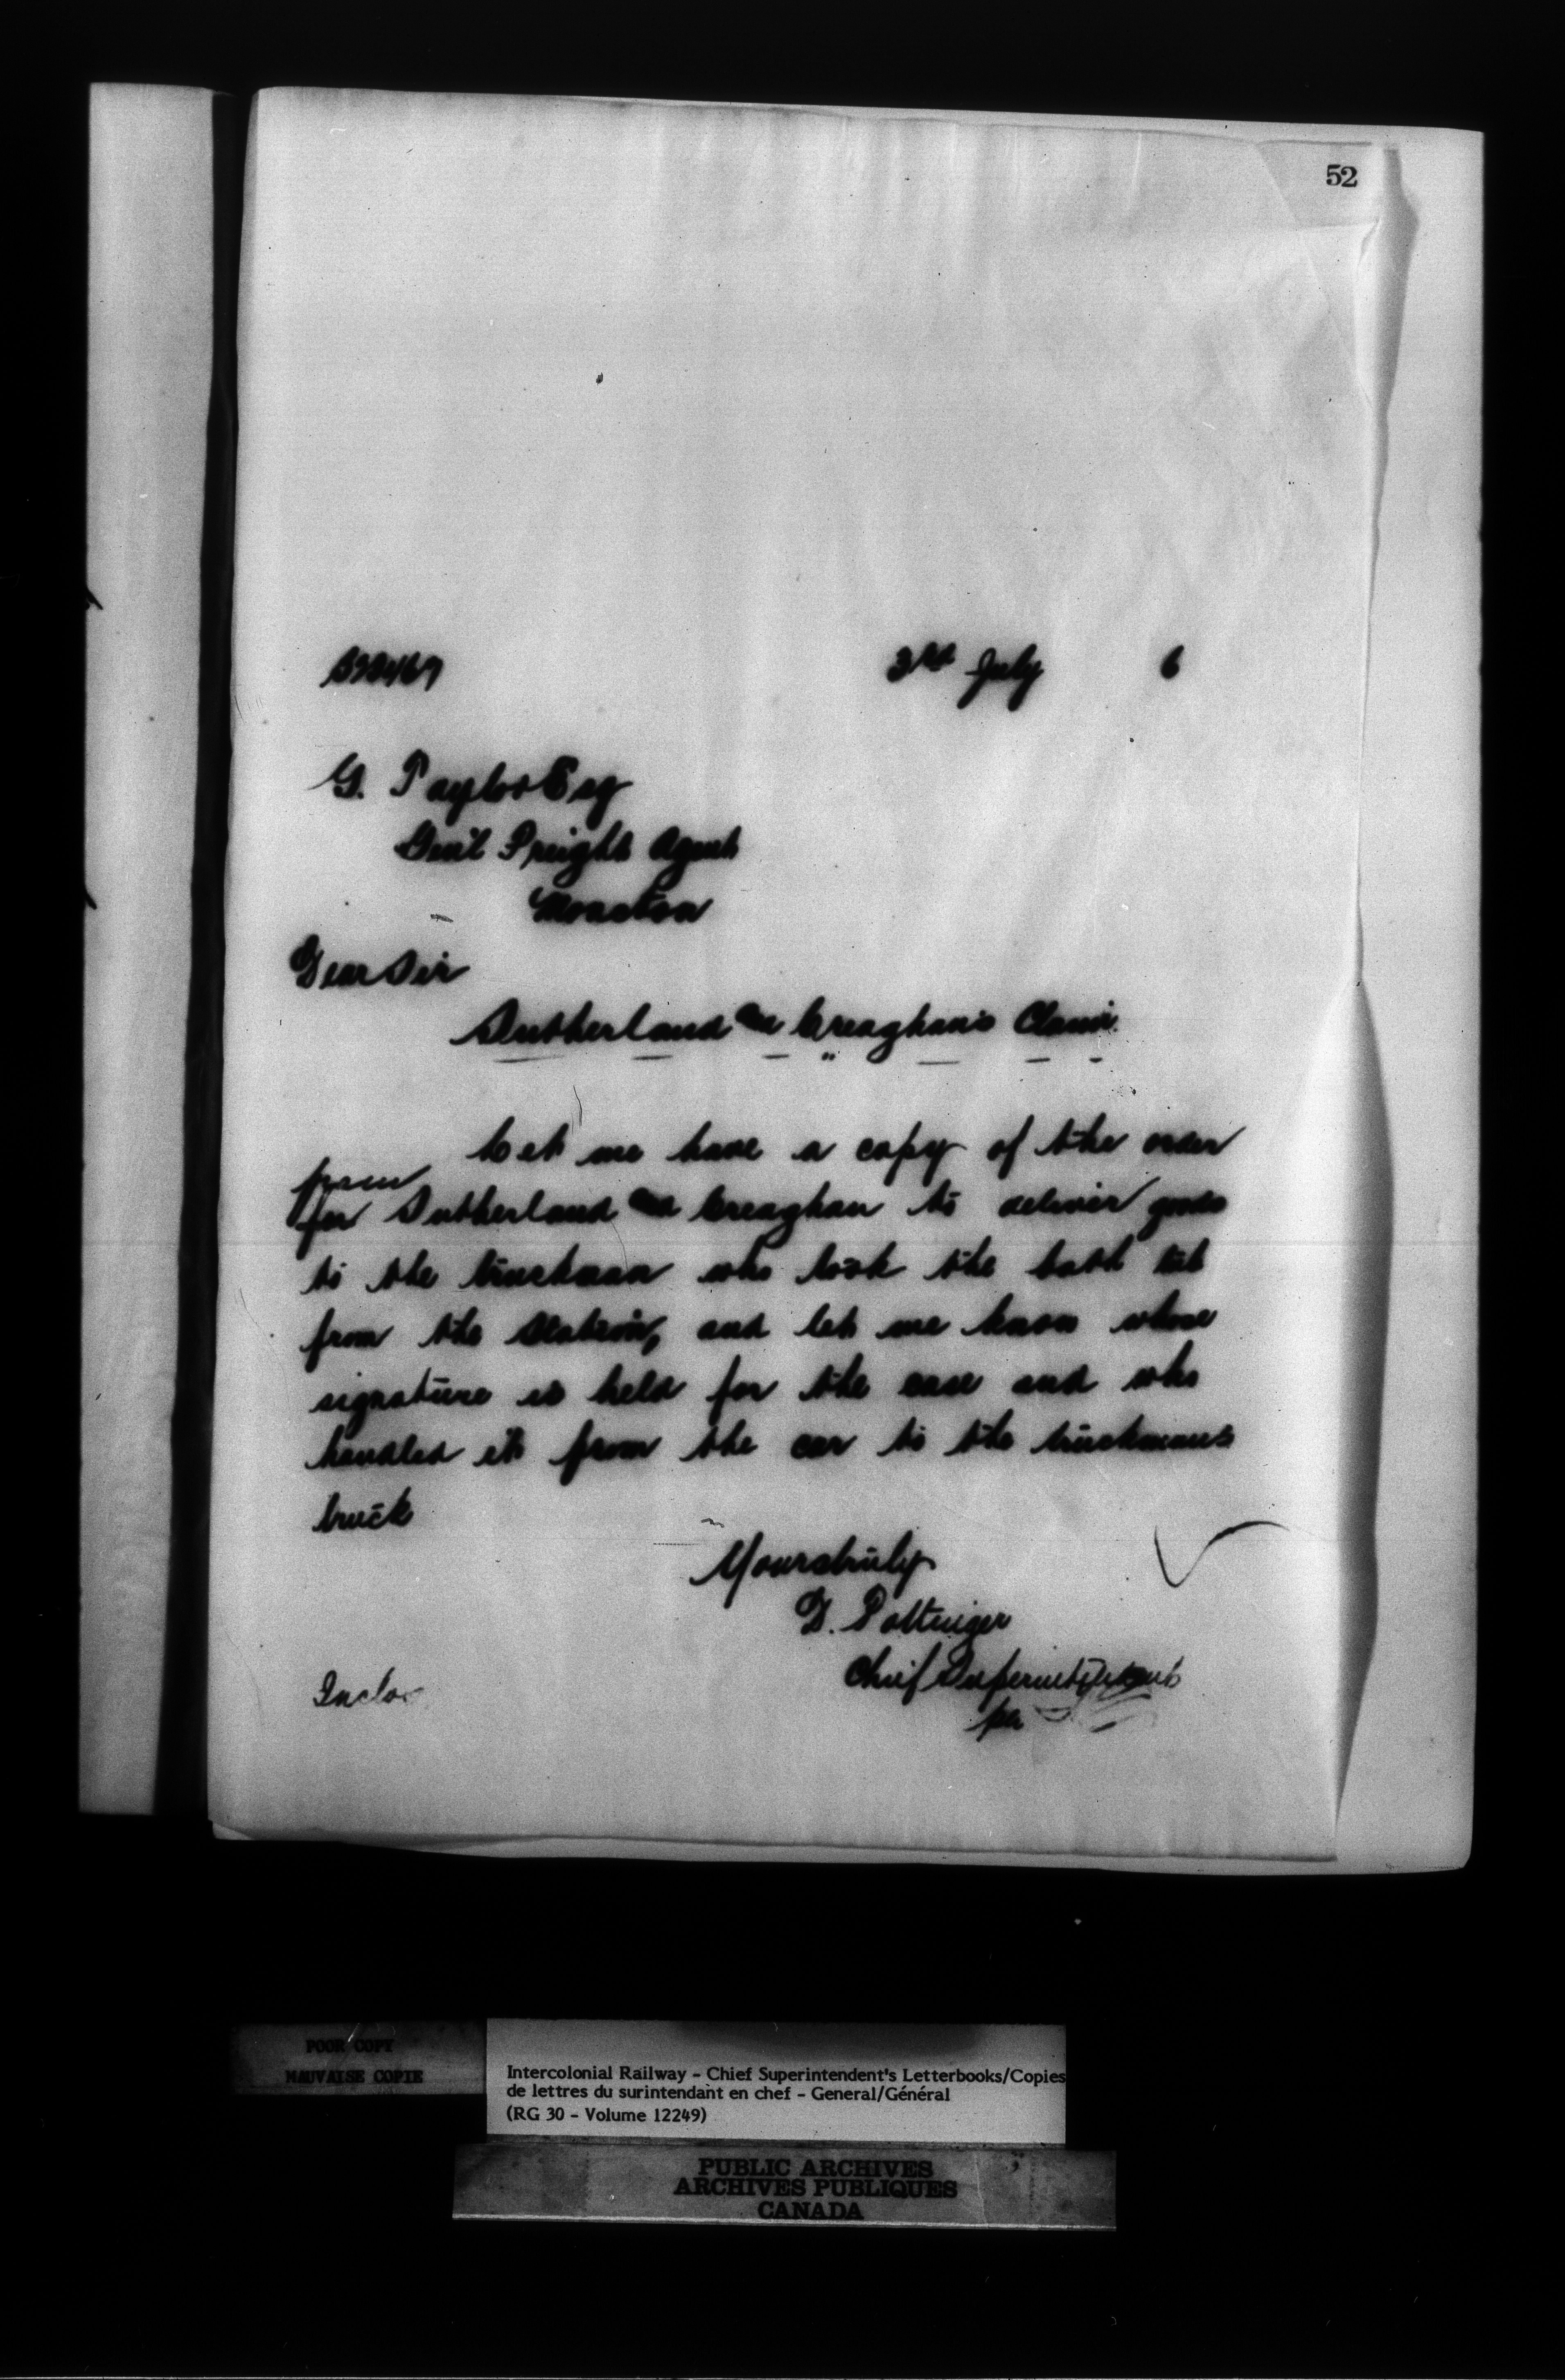 52
3rd July 6
G. Taylor Esq
Gen'l Freight Agent
Moncton
Dear Sir
Sutherland and Creaghan's Claim
Let me have a copy of the order
from
for Sutherland and Creaghan to deliver goods
to the truckman who took the bath tub
from the station, and let me know whose
signature is held for the case and who
handled it from the car to the truckmans
truck
Yours truly
D. Pottinger
Chief Superintendent
Inclo
POOR COPY
MAUVAISE COPIE
Intercolonial Railway - Chief Superintendent's Letterbooks/Copies
de lettres du surintendant en chef - General/Général
(RG 30 - Volume 12249)
PUBLIC ARCHIVES
ARCHIVES PUBLIQUES
CANADA